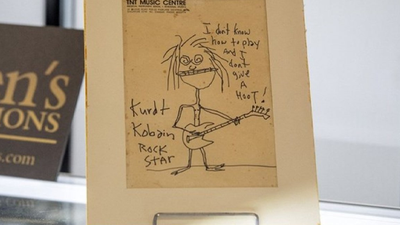 ENT MUSIC CENTRE
I don't know
how to play
and I
don't
give
A
HOOT!
Kurdt
Kobain
ROCK
STAR
en's
IONS
s.com